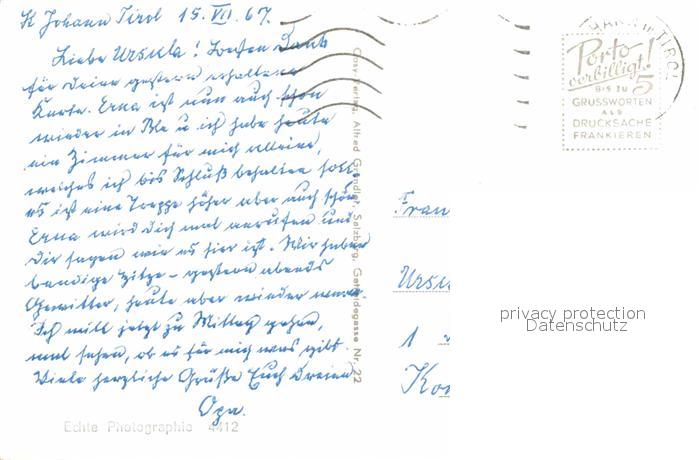 St Johann Tirol 15. VII. 67.
Liebe Ursula! Besten Dank
für Deine gestern erhaltene
Karte. Erna ist nun auch schon
wieder in We u ich habe heute
ein Zimmer für mich alleine,
welches ich bis Schluß behalten soll,
es ist eine Treppe höher aber auch schön
Erna wird Dich mal anrufen und
Dir sagen wie es hier ist. Wir haben
Hitze - gestern abends
Gewitter, heute aber wieder
Ich will jetzt zu Mittag gehen,
mal sehen, ob es für mich was gibt.
Viele herzliche Grüße Euch Dreien
Opa.
Echte Photographie 4412
Cosy-Verlag, Alfred Gründler, Salzburg, Getreidegasse Nr. 22
Porto
verbilligt!
BIS ZU 5
GRUSSWORTEN
ALS
DRUCKSACHE
FRANKIEREN
TIROL
Frau
Ursu
1
Ko
privacy protection
Datenschutz